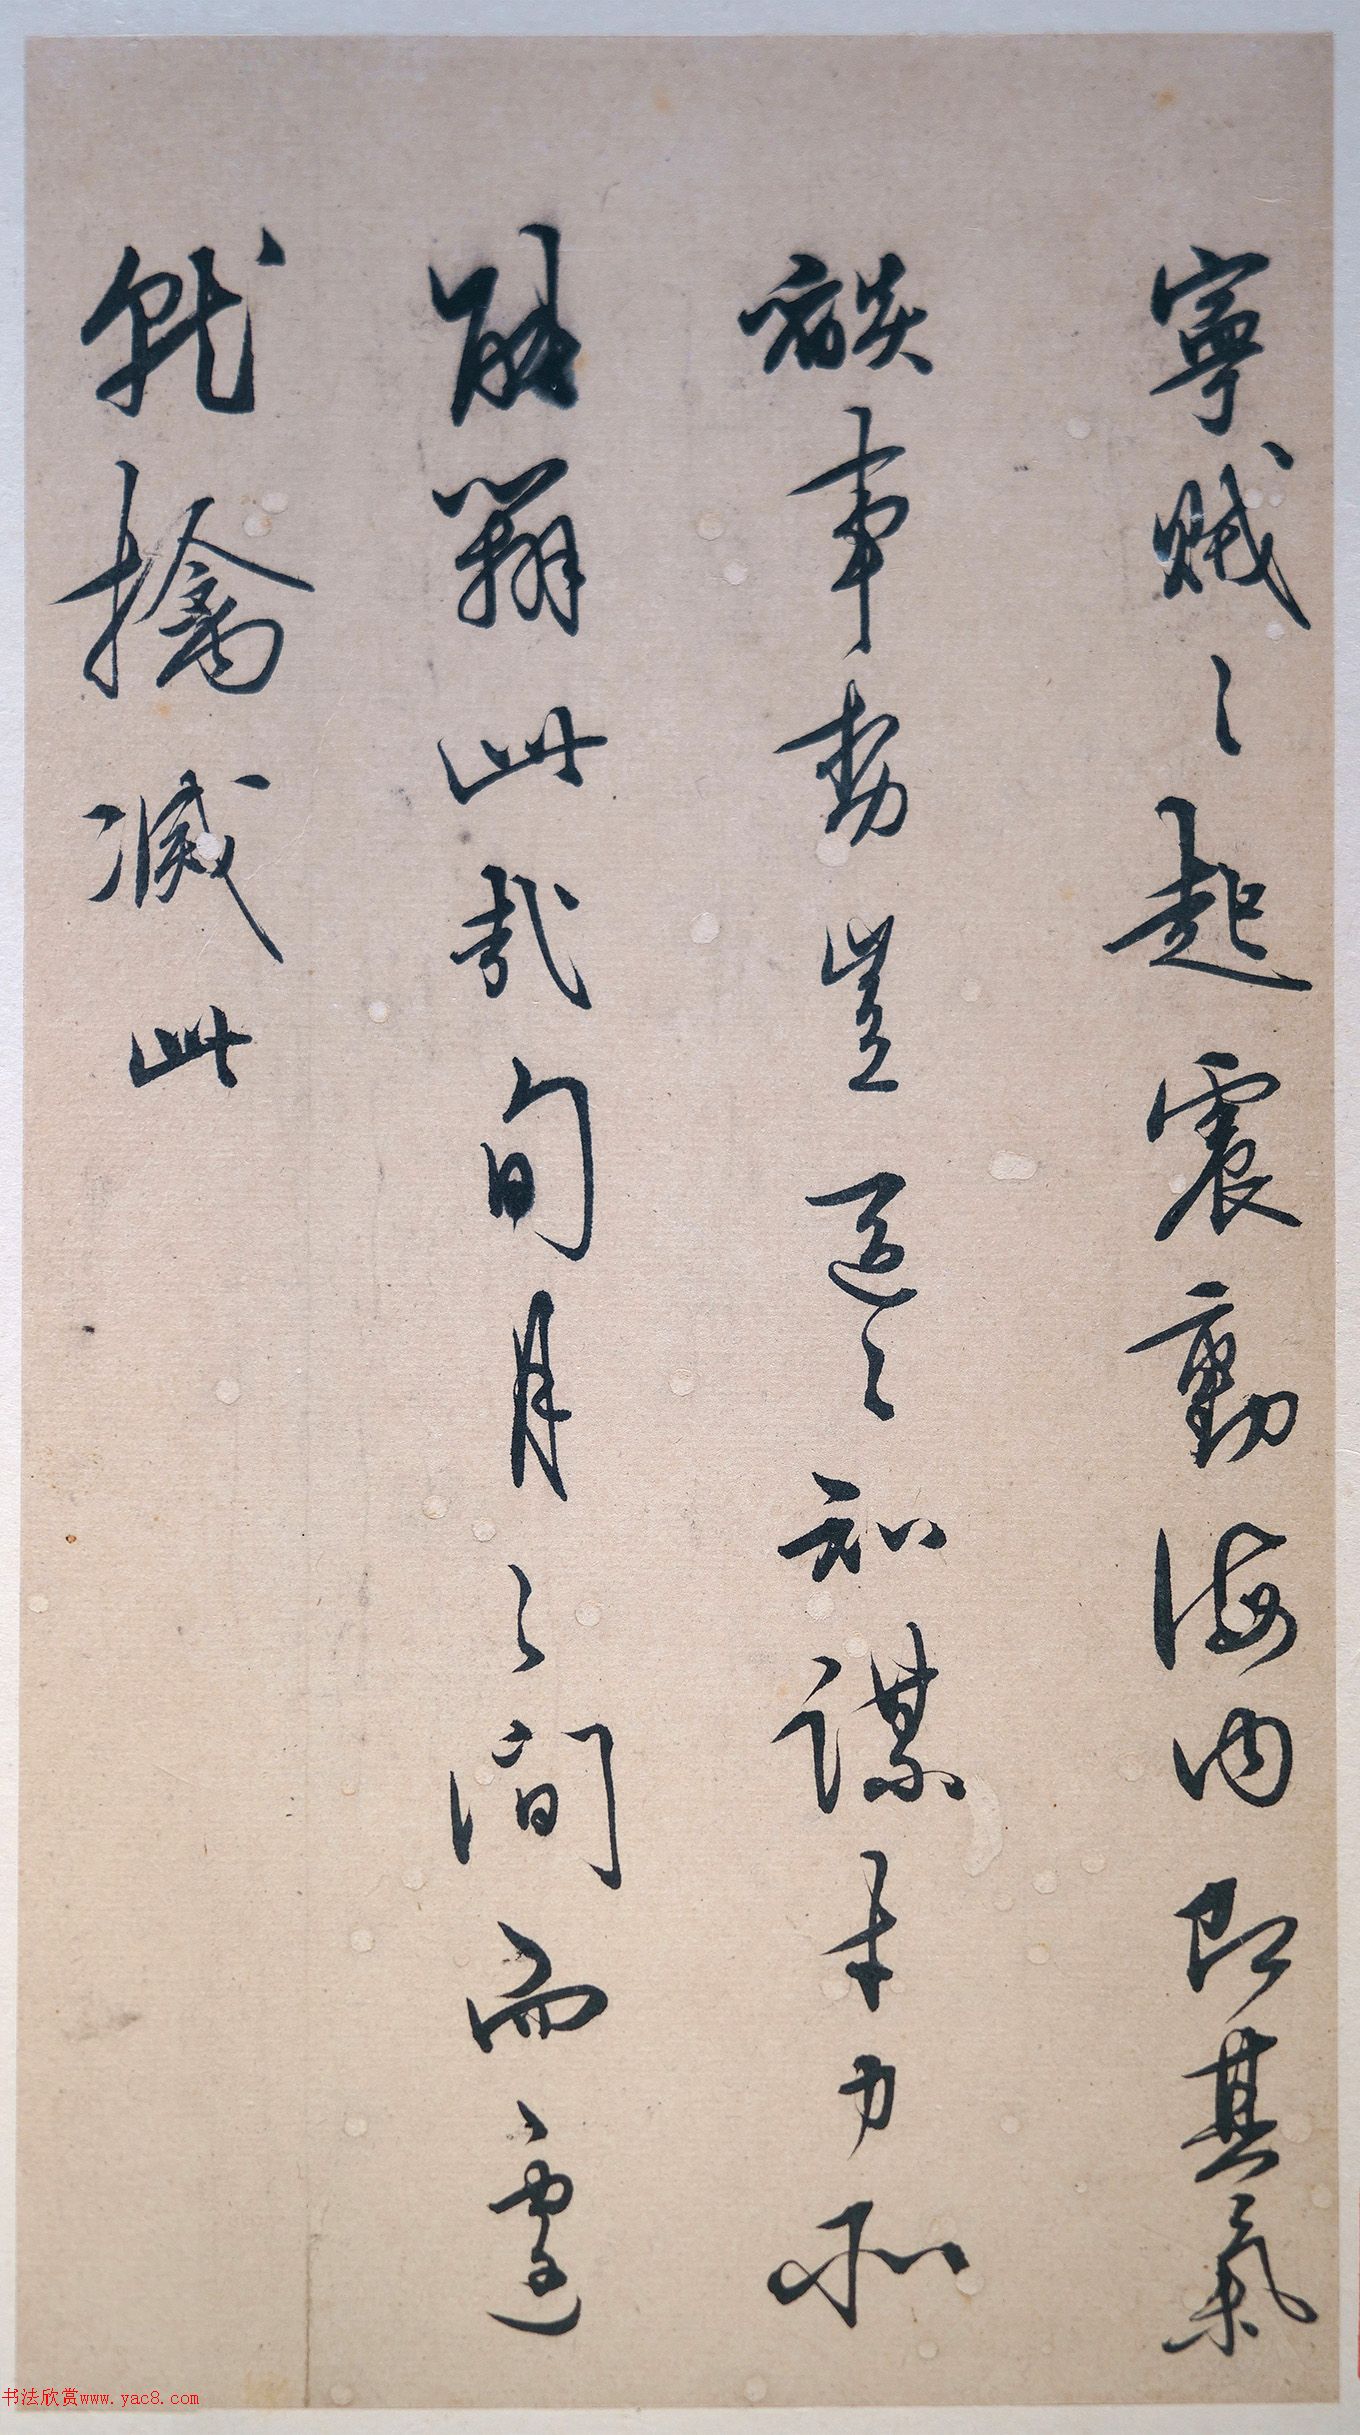 寧賊之起震動海内即其氣
燄事勢豈區區知謀才力所
能辦此哉旬月之間而遽
就擒滅此
书法欣赏www.yac8.com